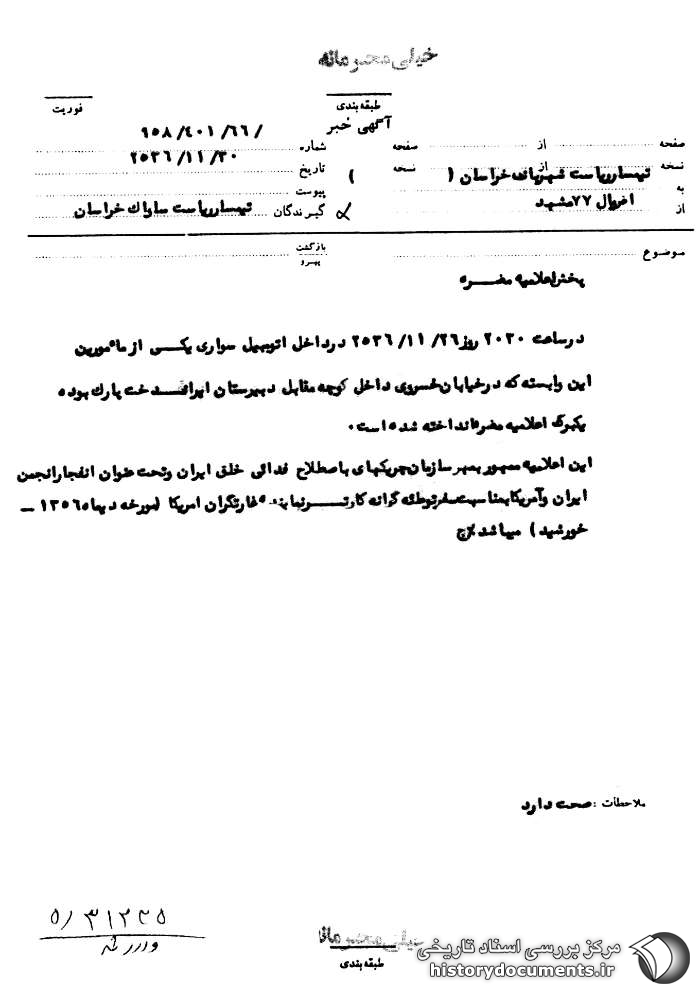 خیلی محرمانه
طبقه بندی
فوریت
آگهی خبر
صفحه از صفحه شماره ۹۵۸/٤۰۱/٦٦/
نسخه از نسخه تاریخ ۲۵۳٦/۱۱/۳۰
به تیمسار ریاست شهربانی خراسان ( ) پیوست
از اخوال ۷۷ مشهد گیرندگان تیمسار ریاست ساواک خراسان
موضوع بازگشت
پیرو
پخش اعلامیه مضره
در ساعت ۲۰۳۰ روز ۲٦/۱۱/۲۵۳٦ در داخل اتومبیل سواری یکی از مامورین
این وابسته که در خیابان خسروی داخل کوچه مقابل دبیرستان ایراندخت پارک بوده
یکبرگ اعلامیه مضره انداخته شده است۰
این اعلامیه ممهور بمهر سازمان چریکهای باصطلاح فدائی خلق ایران وتحت عنوان انفجار انجمن
ایران وآمریکا بمناسبت سفر توطئه گرانه کارتر نماینده غارتگران امریکا (مورخه دیماه ۱۳۵٦ ــ
خورشید) میباشد
ملاحظات : صحت دارد
۵/۳۱۲۳۵
خیلی محرمانه
طبقه بندی
مرکز بررسی اسناد تاریخی
historydocuments.ir